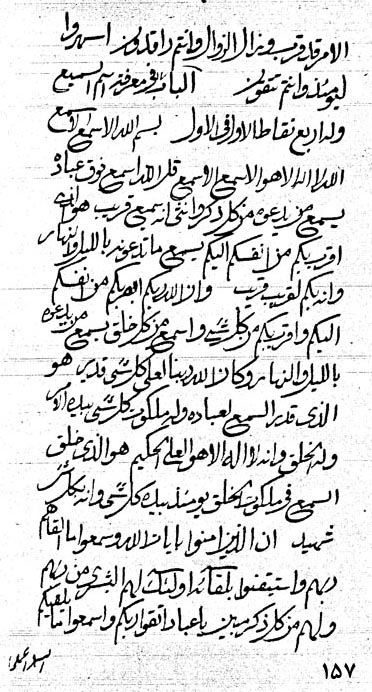 الامر قد قرب ونزال الزوال وانتم راقدون اسهروا
ليومئذ وانتم تتقون الباب في معرفة اسم السميع
وله اربع نقاط الاول في الاول بسم الله الاسمع الاسمع
الله لا اله الا هو الاسمع الاسمع قل الله اسمع فوق عباده
يسمع من يدعوه من كل ذكر وانثى انه سميع قريب هو الذي
اقرب بكم من انفسكم اليكم يسمع ما تدعونه بالليل والنهار
وانه بكم لقريب قريب وان الله ربكم من انفسكم
اليكم واقرب بكم من كل شيء واسمع من كل خلق يسمع من يدعوه
بالليل والنهار وكان الله ربنا لعلى كل شيء قدير هو
الذي قدر السمع لعباده وله ملكوت كل شيء بيده الامر
وله الخلق وانه لا اله الا هو العلي الحكيم هو الذي خلق
السمع في ملكوت الخلق يومئذ بيده كل شيء وانه بكل شيء
شهيد ان الذين امنوا بايات الله وسمعوا ما القاهم
ربهم واستيقنوا بلقائه اولئك لهم البشرى من ربهم
ولهم من كل ذكر مبين يا عباد اتقوا ربكم واسمعوا ما يلقيكم
١٥٧